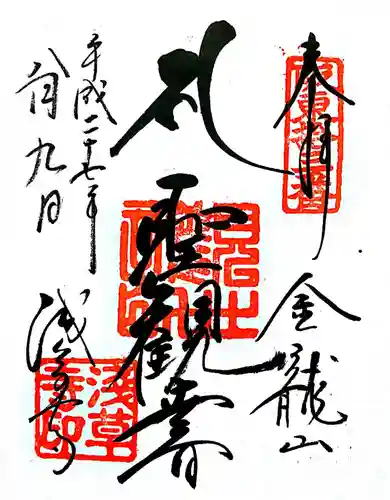 奉拝
金龍山
聖観音
平成二十七年
八月九日
浅草寺